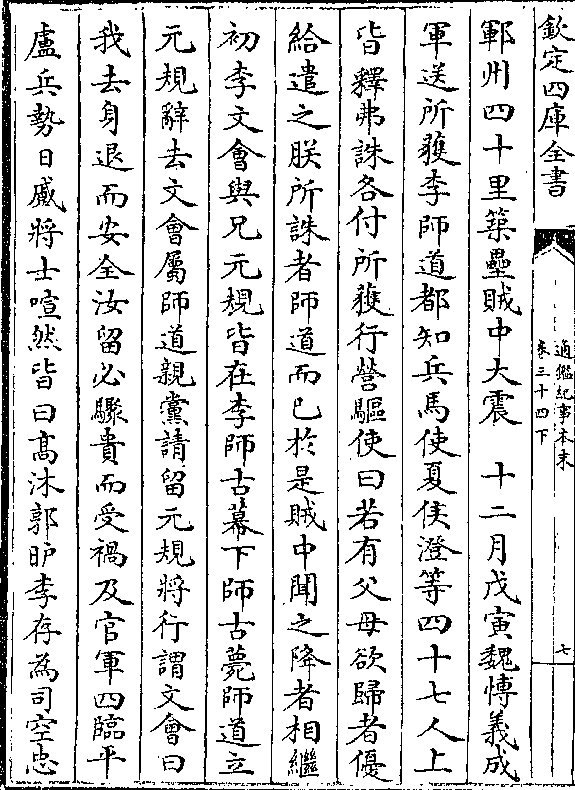 欽定四庫全書
通鑑紀事本末
卷三十四下
七
鄆州四十里築壘賊中大震　十二月戊寅魏博義成
軍送所獲李師道都知兵馬使夏侯澄等四十七人上
皆釋弗誅各付所獲行營驅使曰若有父母欲歸者優
給遣之朕所誅者師道而已於是賊中聞之降者相繼
初李文會與兄元規皆在李師古幕下師古薨師道立
元規辭去文會屬師道親黨請留元規將行謂文會曰
我去身退而安全汝留必驟貴而受禍及官軍四臨平
盧兵勢日蹙將士喧然皆曰高沐郭昈李存為司空忠